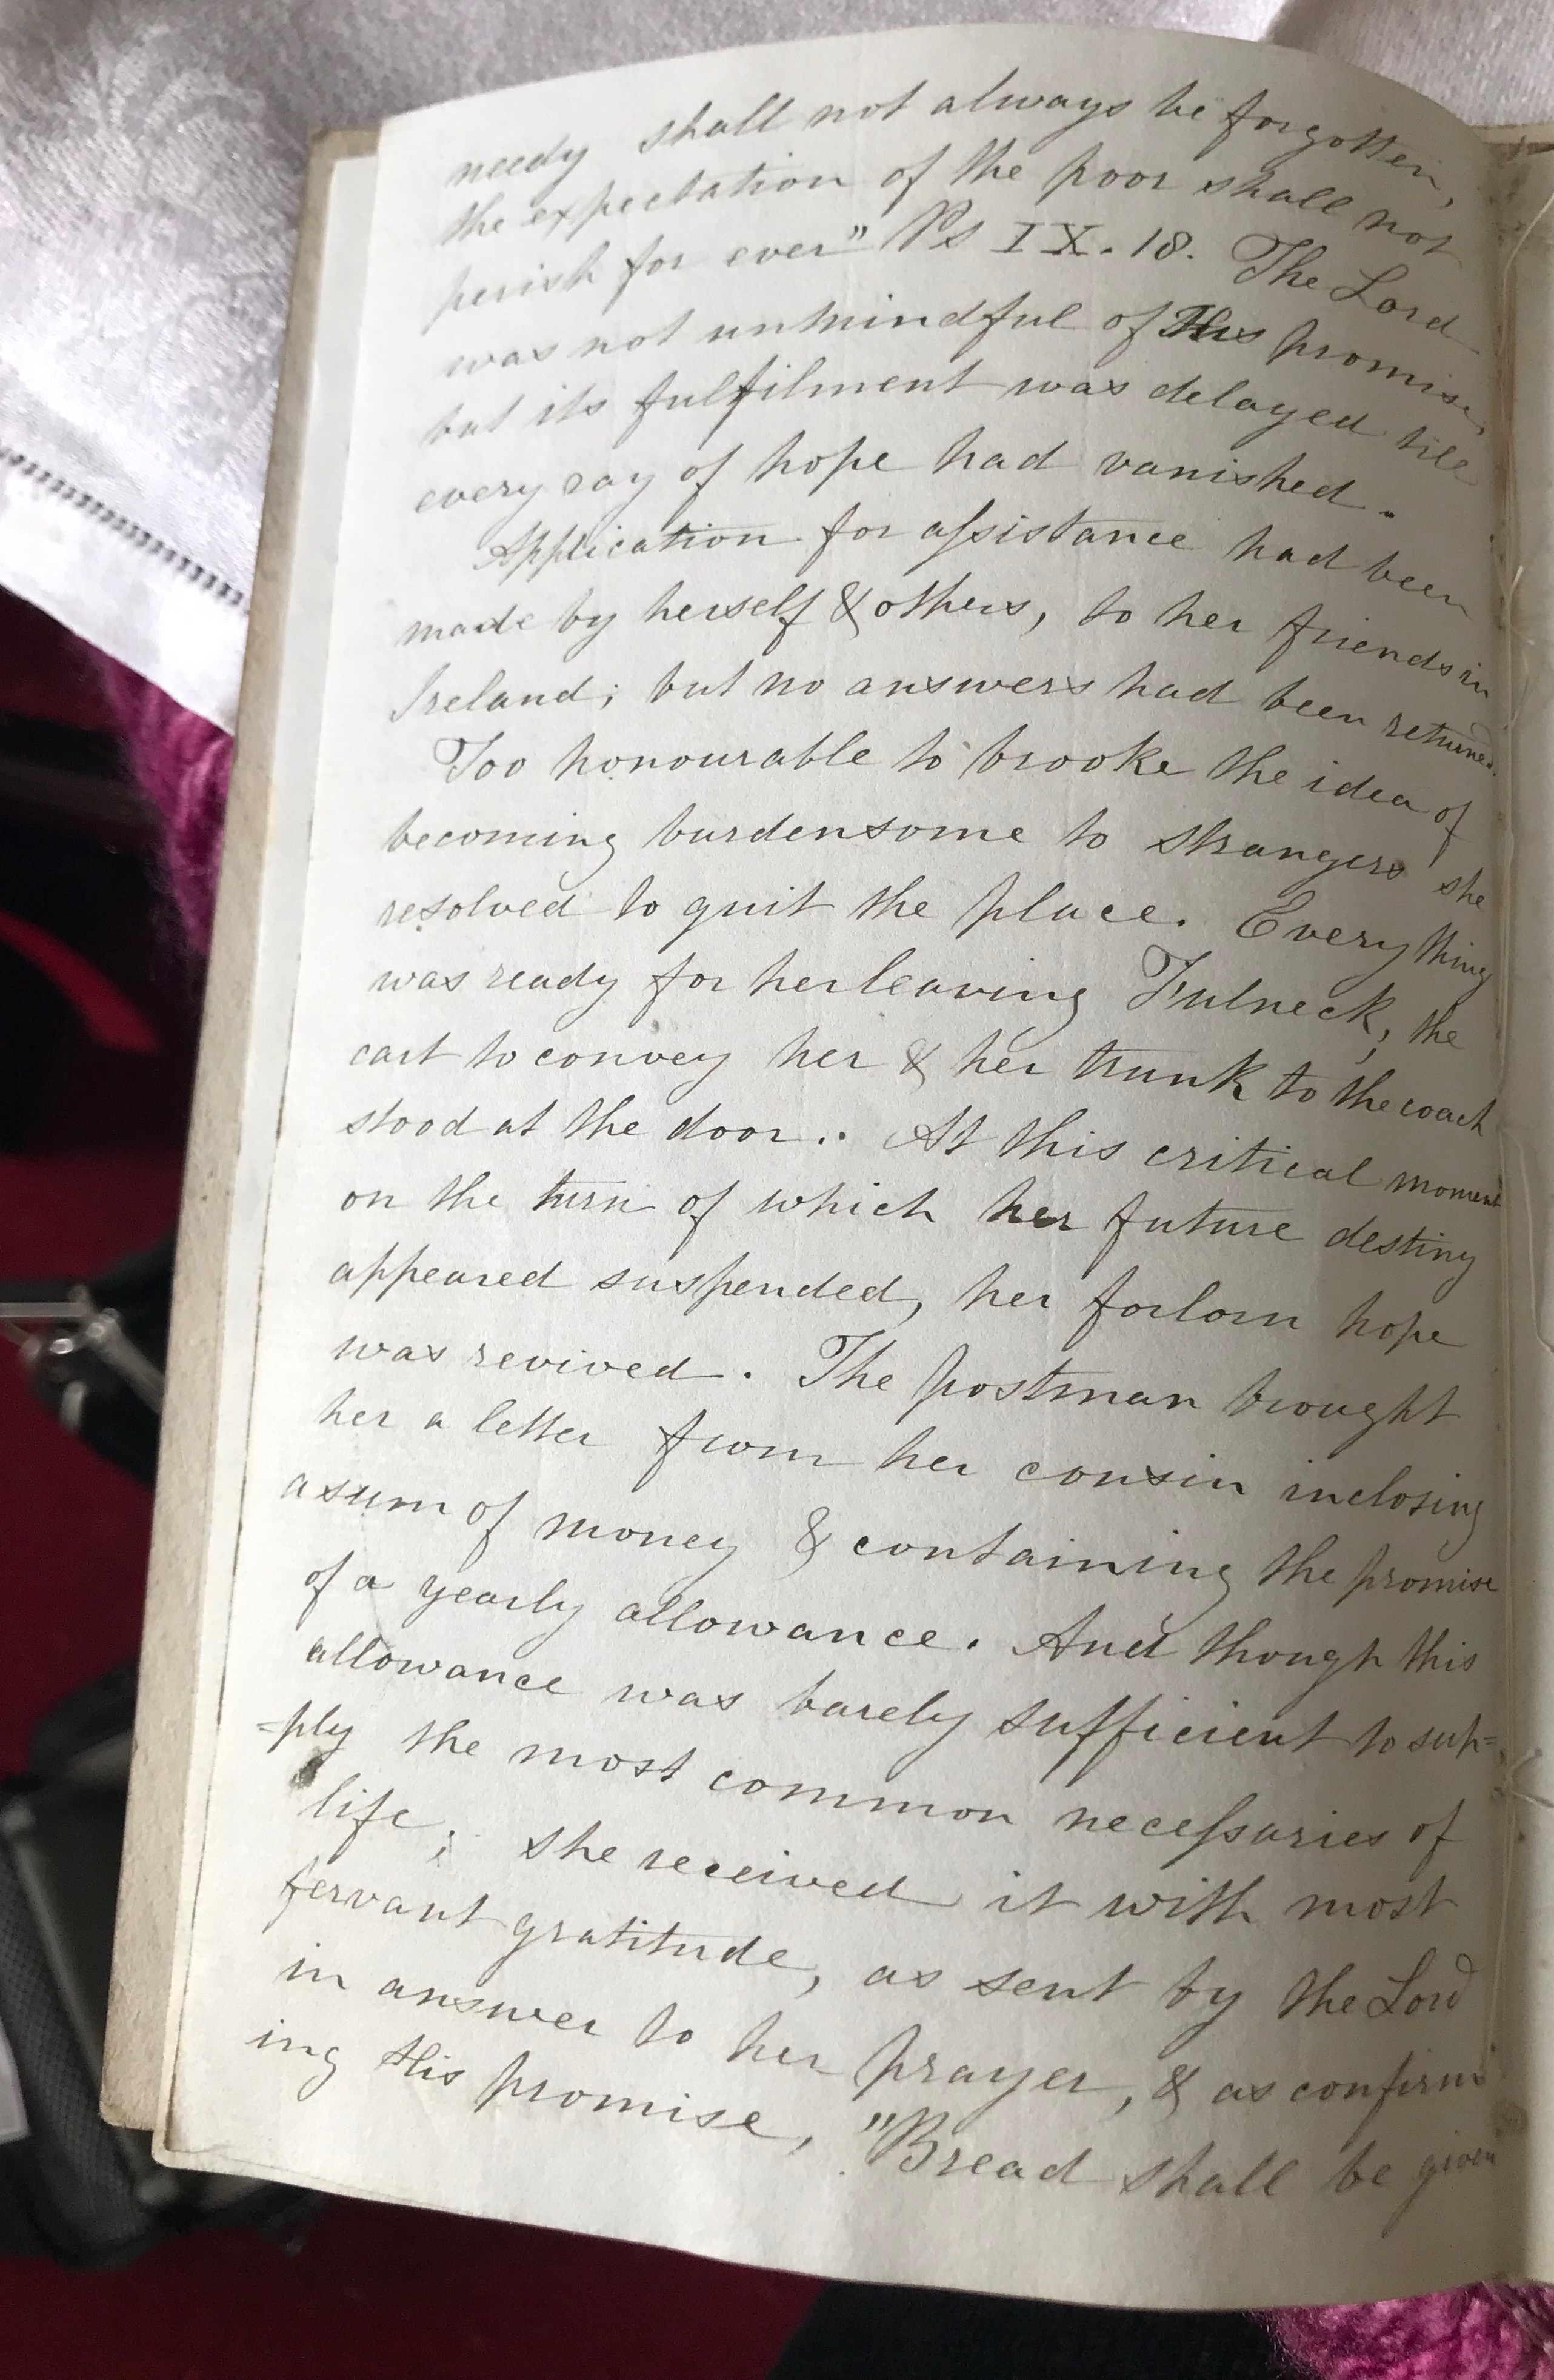 needy shall not always be forgotten,
the expectation of the poor shall not
perish for ever" Ps IX. 18. The Lord
was not unmindful of His promise,
but its fulfilment was delayed till
every ray of hope had vanished.
Application for assistance had been
made by herself & others, to her friends in
Ireland; but no answers had been returned.
Too honourable to brooke the idea of
becoming burdensome to strangers she
resolved to quit the place. Every thing
was ready for her leaving Fulneck, the
cart to convey her & her trunk to the coach
stood at the door.. At this critical moment
on the turn of which her future destiny
appeared suspended, her forlorn hope
was revived. The postman brought
her a letter from her cousin inclosing
a sum of money & containing the promise
of a yearly allowance. And though this
allowance was barely sufficient to sup=
=ply the most common necessaries of
life; she received it with most
fervant gratitude, as sent by the Lord
in answer to her prayer, & as confirm
ing His promise, "Bread shall be given